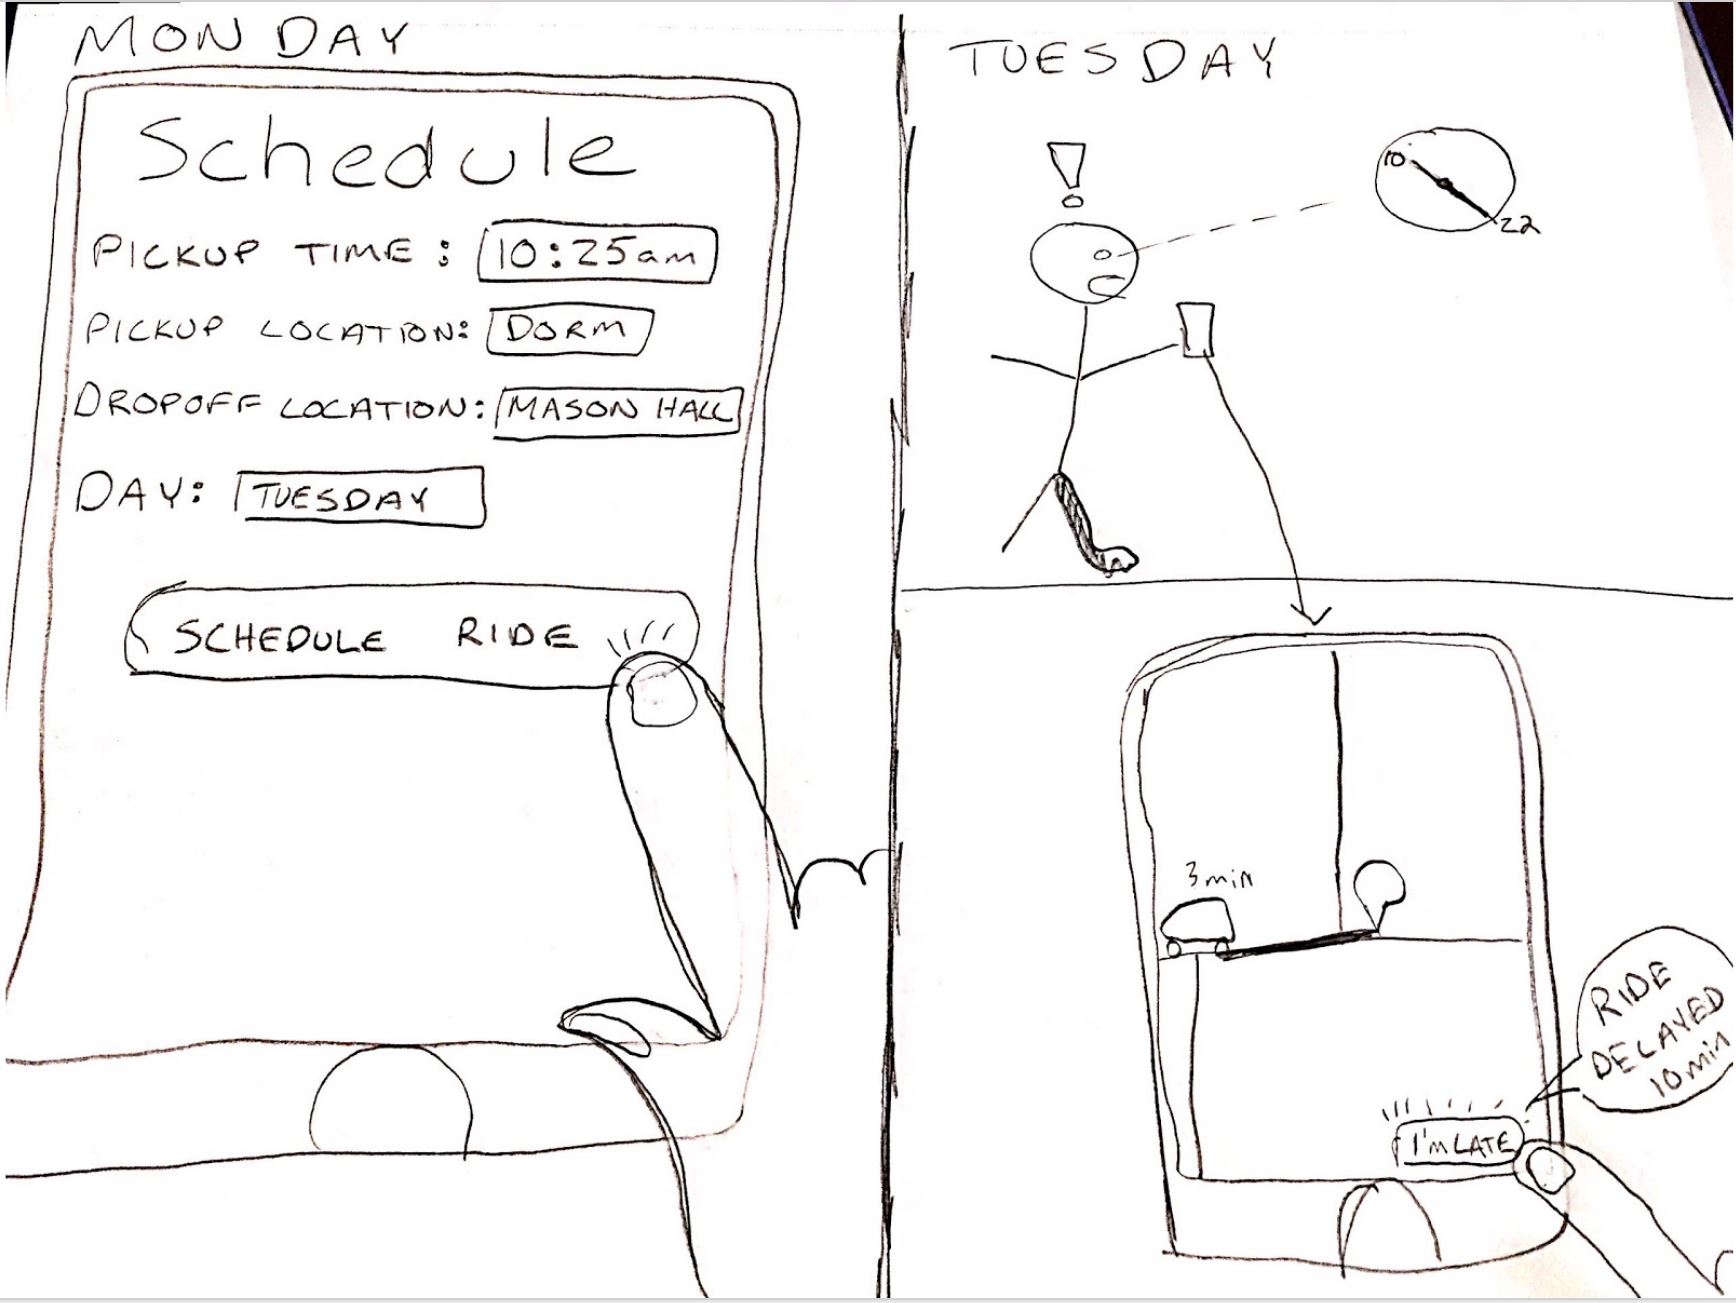 MONDAY
Schedule
PICKUP TIME: 10:25am
PICKUP LOCATION: DORM
DROPOFF LOCATION: MASON HALL
DAY: TUESDAY
SCHEDULE RIDE
TUESDAY
!
10
22
3 min
RIDE
DELAYED
10 min
I'm LATE